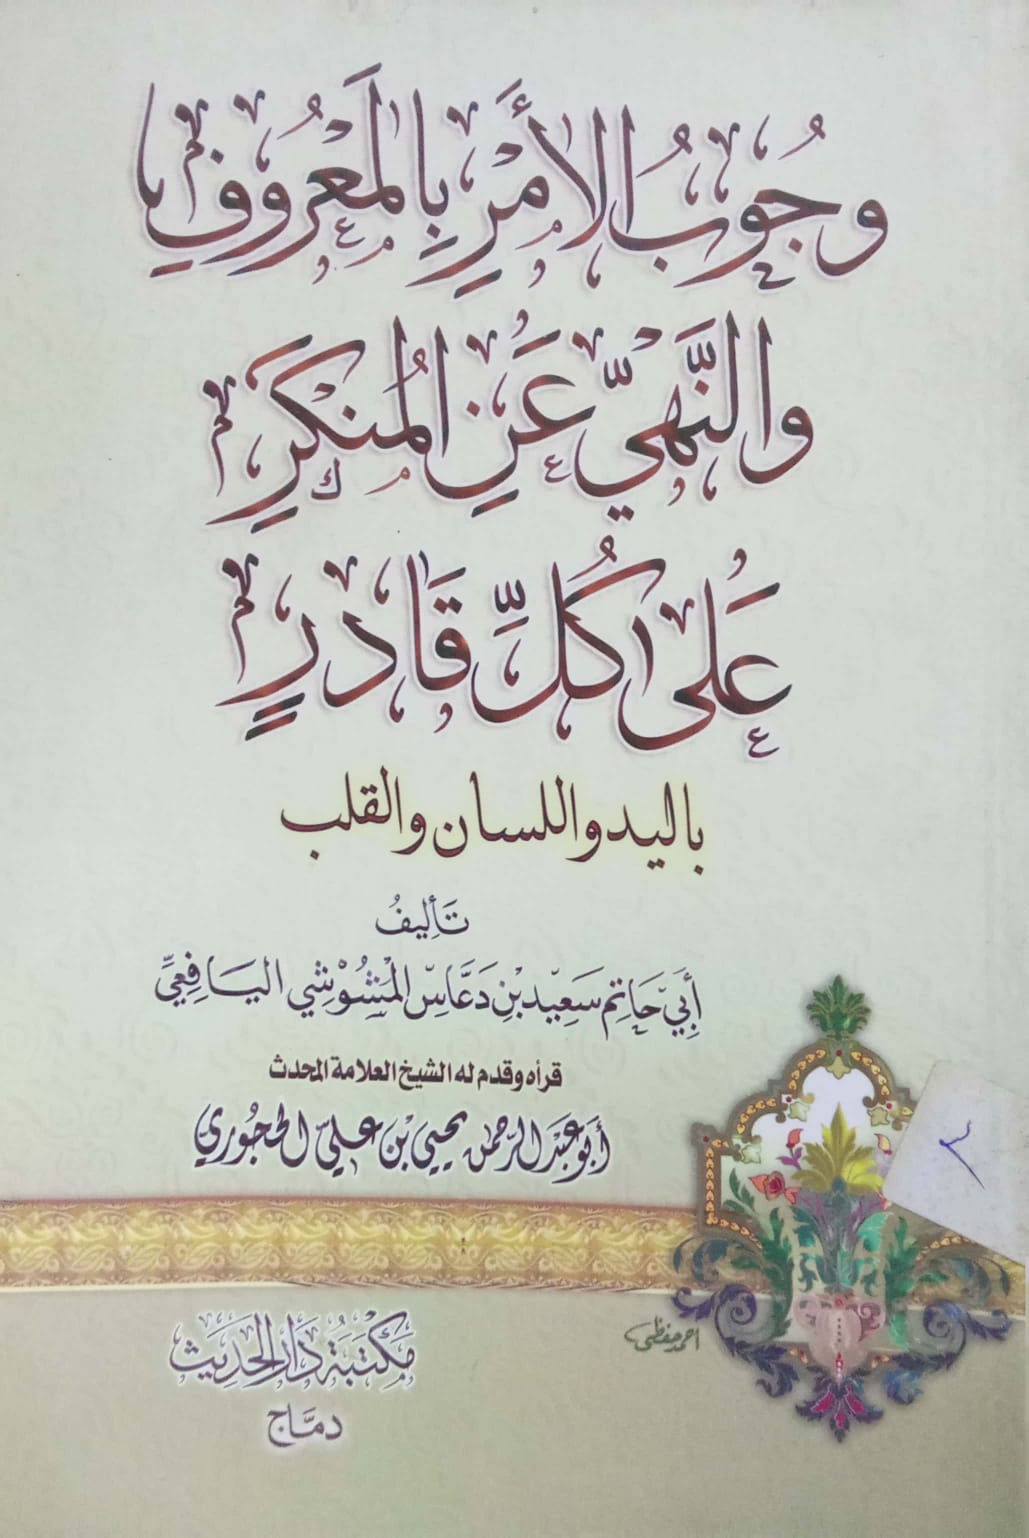 وُجُوبُ الأَمْرِ بِالمَعْرُوفِ
وَالنَّهْيِّ عَنِ المُنْكَرِ
عَلَى كُلِّ قَادِرٍ
باليد واللسان والقلب
تَأليفُ
أَبِيْ حَاتِمٍ سَعِيْدِ بْنِ دَعَّاسٍ المْشُوْشِي اليَافِعِيِّ
قرأه وقدم له الشيخ العلامة المحدث
أبو عبد الرحمن يحيى بن علي الحجوري
احمد حفظي
مَكْتَبَةُ دَارِ الحَدِيْث
دمَّاج
٣